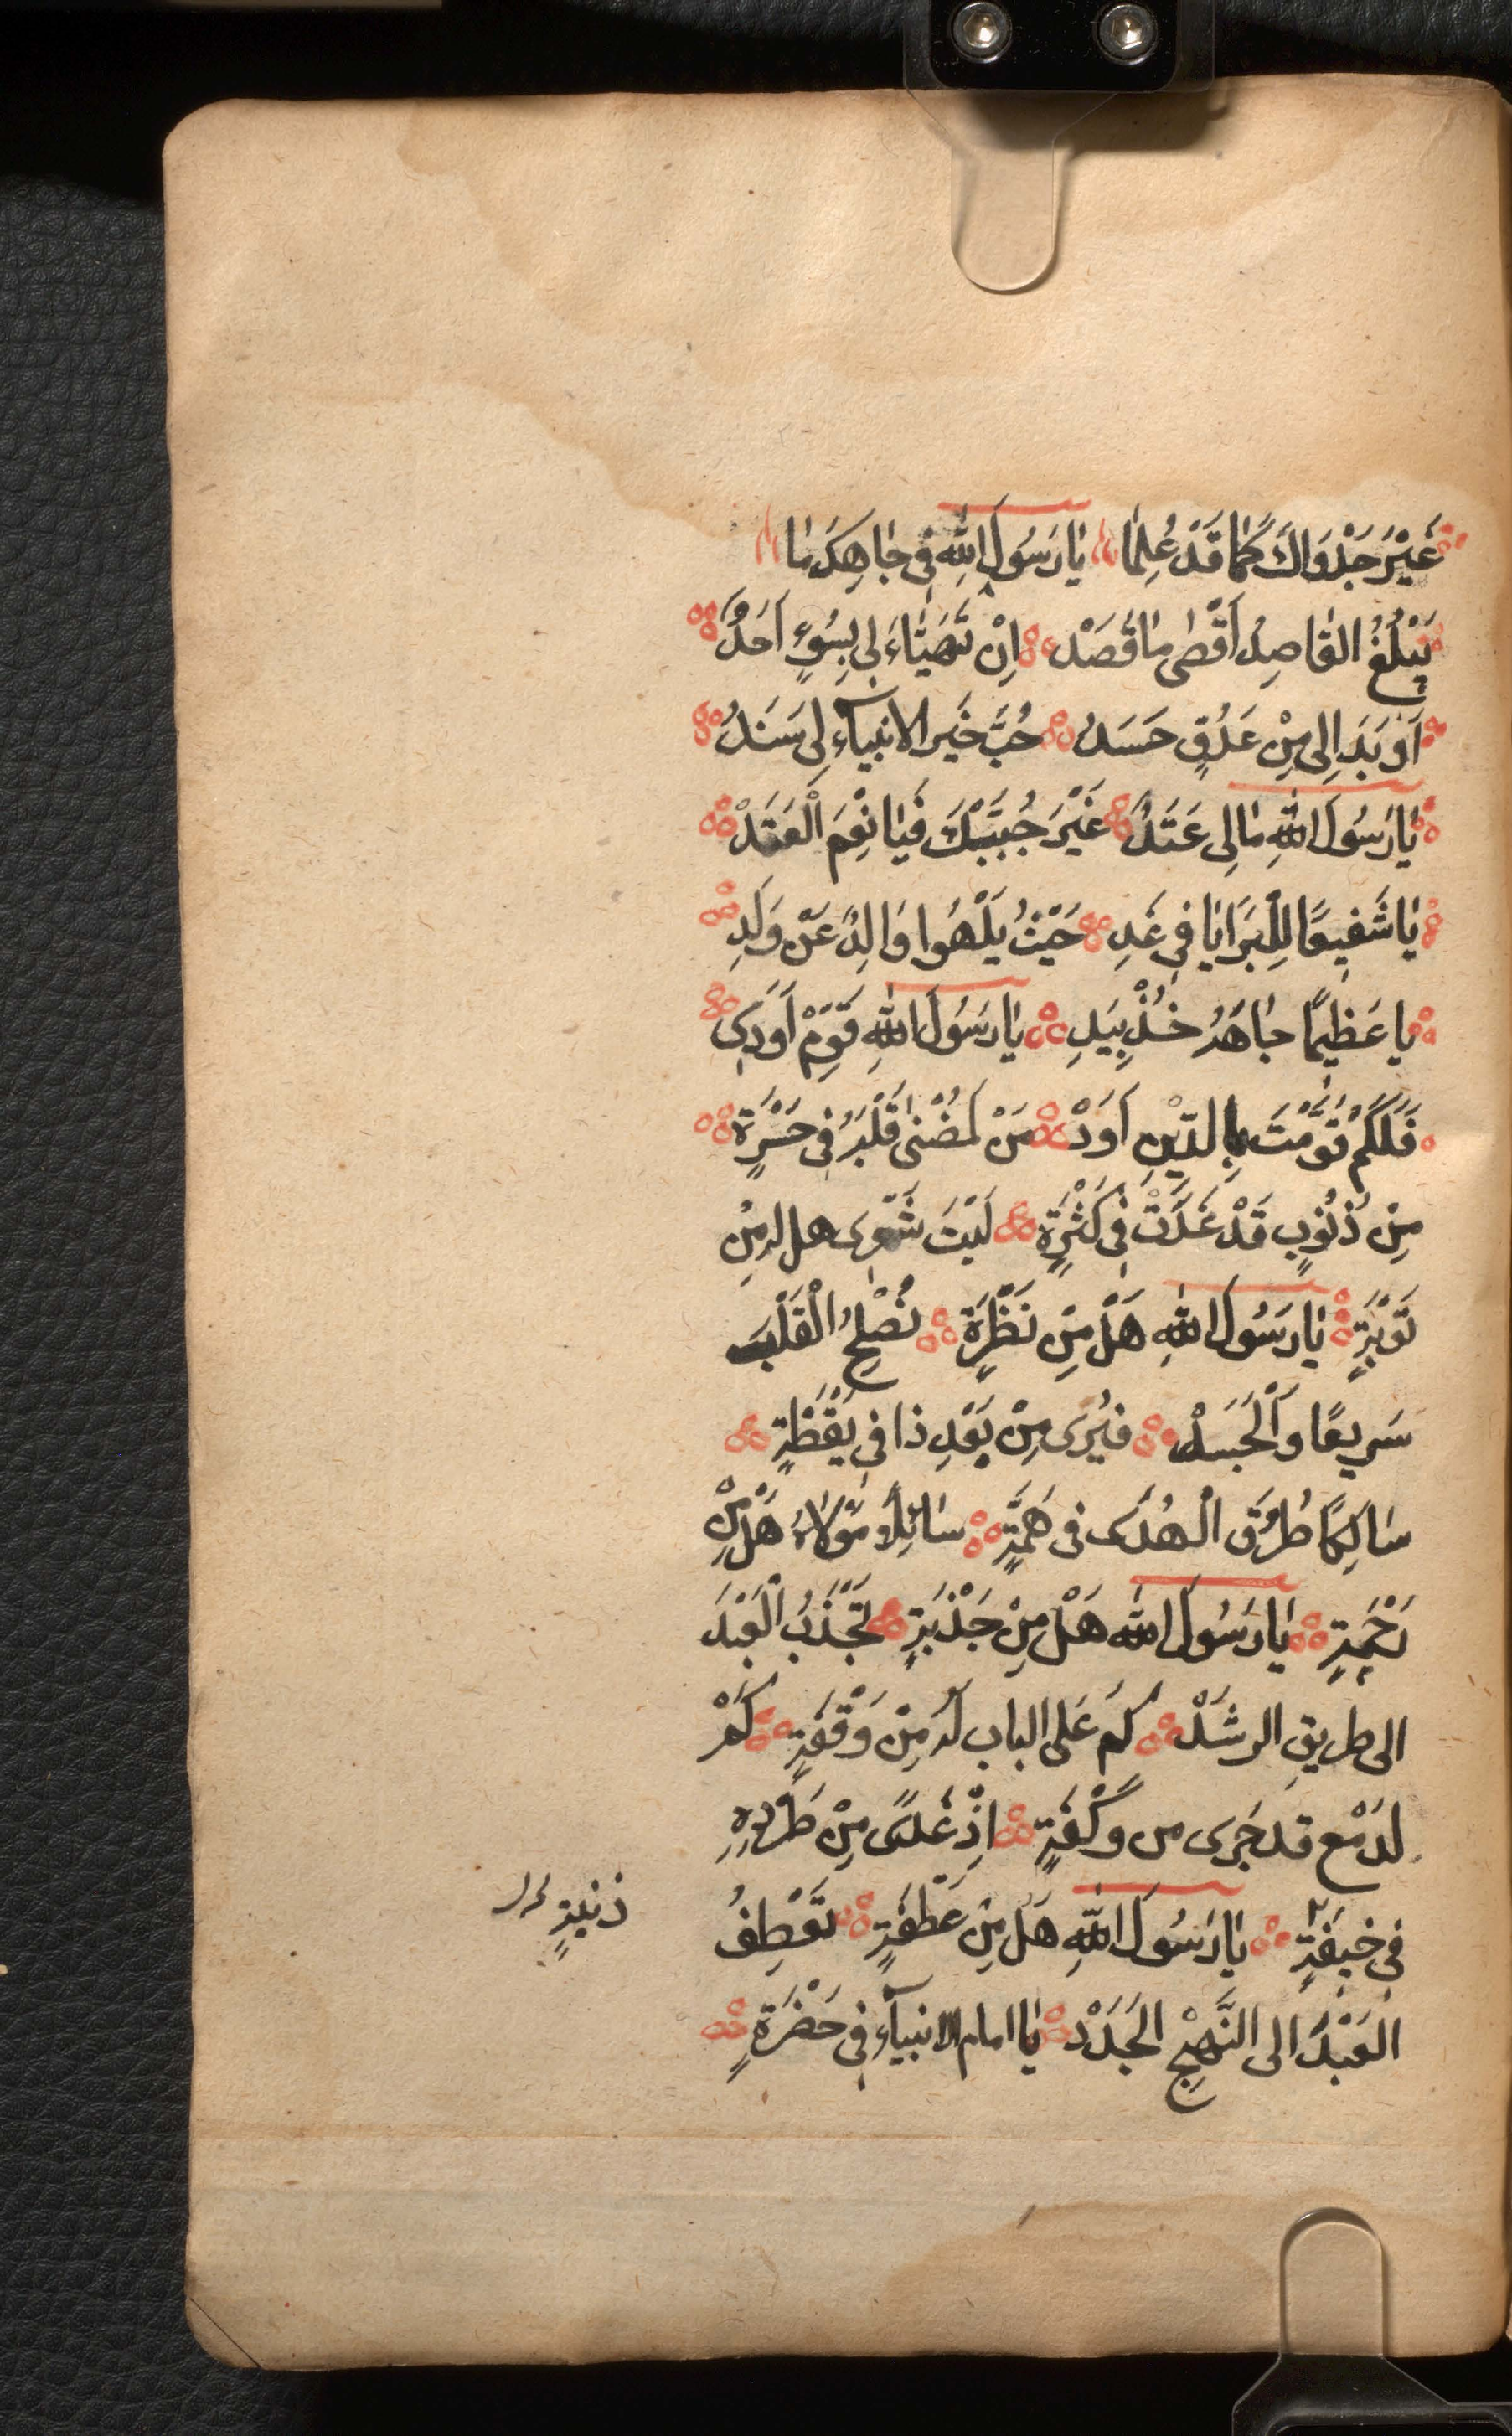 غَيْرُ جَدْوَاكَ كَمَا قَدْ عُلِمَا يَا رَسُولَ اللهِ فِي جَاهِكَ مَا
يَبْلُغُ القَاصِدُ أَقْصَى مَا قَصَدْ اِنْ تَهَيَّاءَ لِي بِسُوءٍ اَحَدُ
اَوْ بَدَا لِي مِنْ عَدُوٍّ حَسَدُ حُبُّ خَيْرِ الانبيآءِ لِي سَنَدُ
يَا رَسُولَ اللهِ مَا لِي عَتَدُ غَيْرَ حُبَيِّكَ فَيَا نِعْمَ الْعَتَدْ
يَا شَفِيعًا لِلْبَرَايَا فِي غَدِ حَيْثُ يَلْهُوا وَالِدٌ عَنْ وَلَدِ
يا عَظِيمًا جَاهُهُ خُذْ بِيَدِ يَا رَسُولَ اللهِ قَوِّمْ أَوَدِي
فَلَكَمْ قَوَّمْتَ بِالدِّيْنِ اَوَدْ مَنْ لَمُضْنى قَلْبُهُ فِي حَسْرَةٍ
مِنْ ذُنُوبٍ قَدْ غَدَتْ فِي كَثْرَةٍ لَيْتَ شَعْرى هل له مِنْ
تَوْبَةٍ يَا رَسُولَ اللهِ هَلْ مِنْ نَظْرَةٍ تُصْلِحُ الْقَلْبَ
سَرِيعًا وَالْجَسَدْ فَيُرَى مِنْ بَعْدِ ذَا فِي يَقْظَةٍ
سَالِكًا طُرُقَ الْهُدَى فى هَمَّةٍ سَائِلًا مَوْلَاهُ هَلْ مِنْ
رَحْمَةٍ يَا رَسُولَ اللهِ هَلْ مِنْ جَذْبَةٍ تَجْذِبُ الْعَبْدَ
الى طريقِ الرشَدْ كم عَلى الباب لَهُ مِنْ وَقْفَةٍ كَمْ
لدَمْع قد جَرى من وَكْفَةٍ اِذْ غَدَى مِنْ طَرْدِهِ
فِي خيفَةٍ يَا رَسُولَ اللهِ هَلْ مِنْ عَطْفَةٍ تَعْطِفُ
ذنبةٍ
العَبْدَ الى النَّهْجِ الجَدَدْ يَا امام الانبيآءِ فِي حَضْرَةٍ